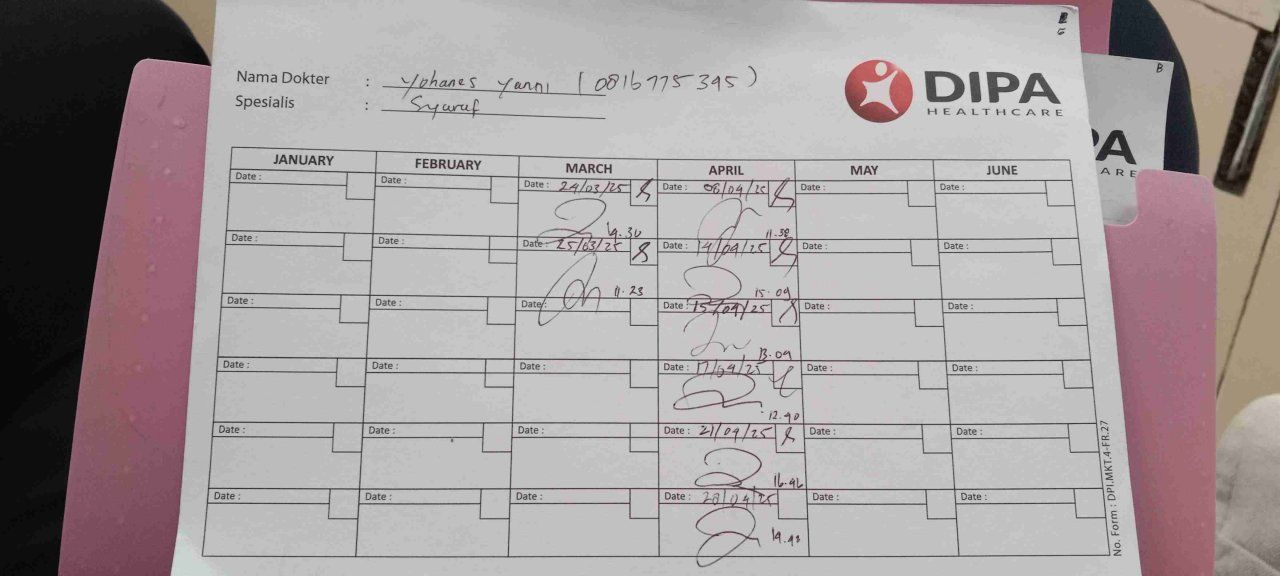 Nama Dokter : Yohanes Yanni (0816775395)
Spesialis : Syaraf
DIPA
HEALTHCARE
B
PA
ARE
JANUARY FEBRUARY MARCH APRIL MAY JUNE
Date : Date : Date : 24/03/25 Date : 08/04/25 Date : Date :
14.30 11.38
Date : Date : Date : 25/03/25 Date : 14/04/25 Date : Date :
11.23 15.09
Date : Date : Date : Date : 15/04/25 Date : Date :
13.09
Date : Date : Date : Date : 17/04/25 Date : Date :
12.40
Date : Date : Date : Date : 21/04/25 Date : Date :
16.46
Date : Date : Date : Date : 28/04/25 Date : Date :
No. Form : DPI.MKT.4-FR.27